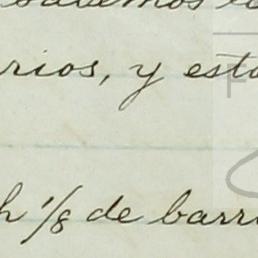 rios, y esta
h 1/8 de barri